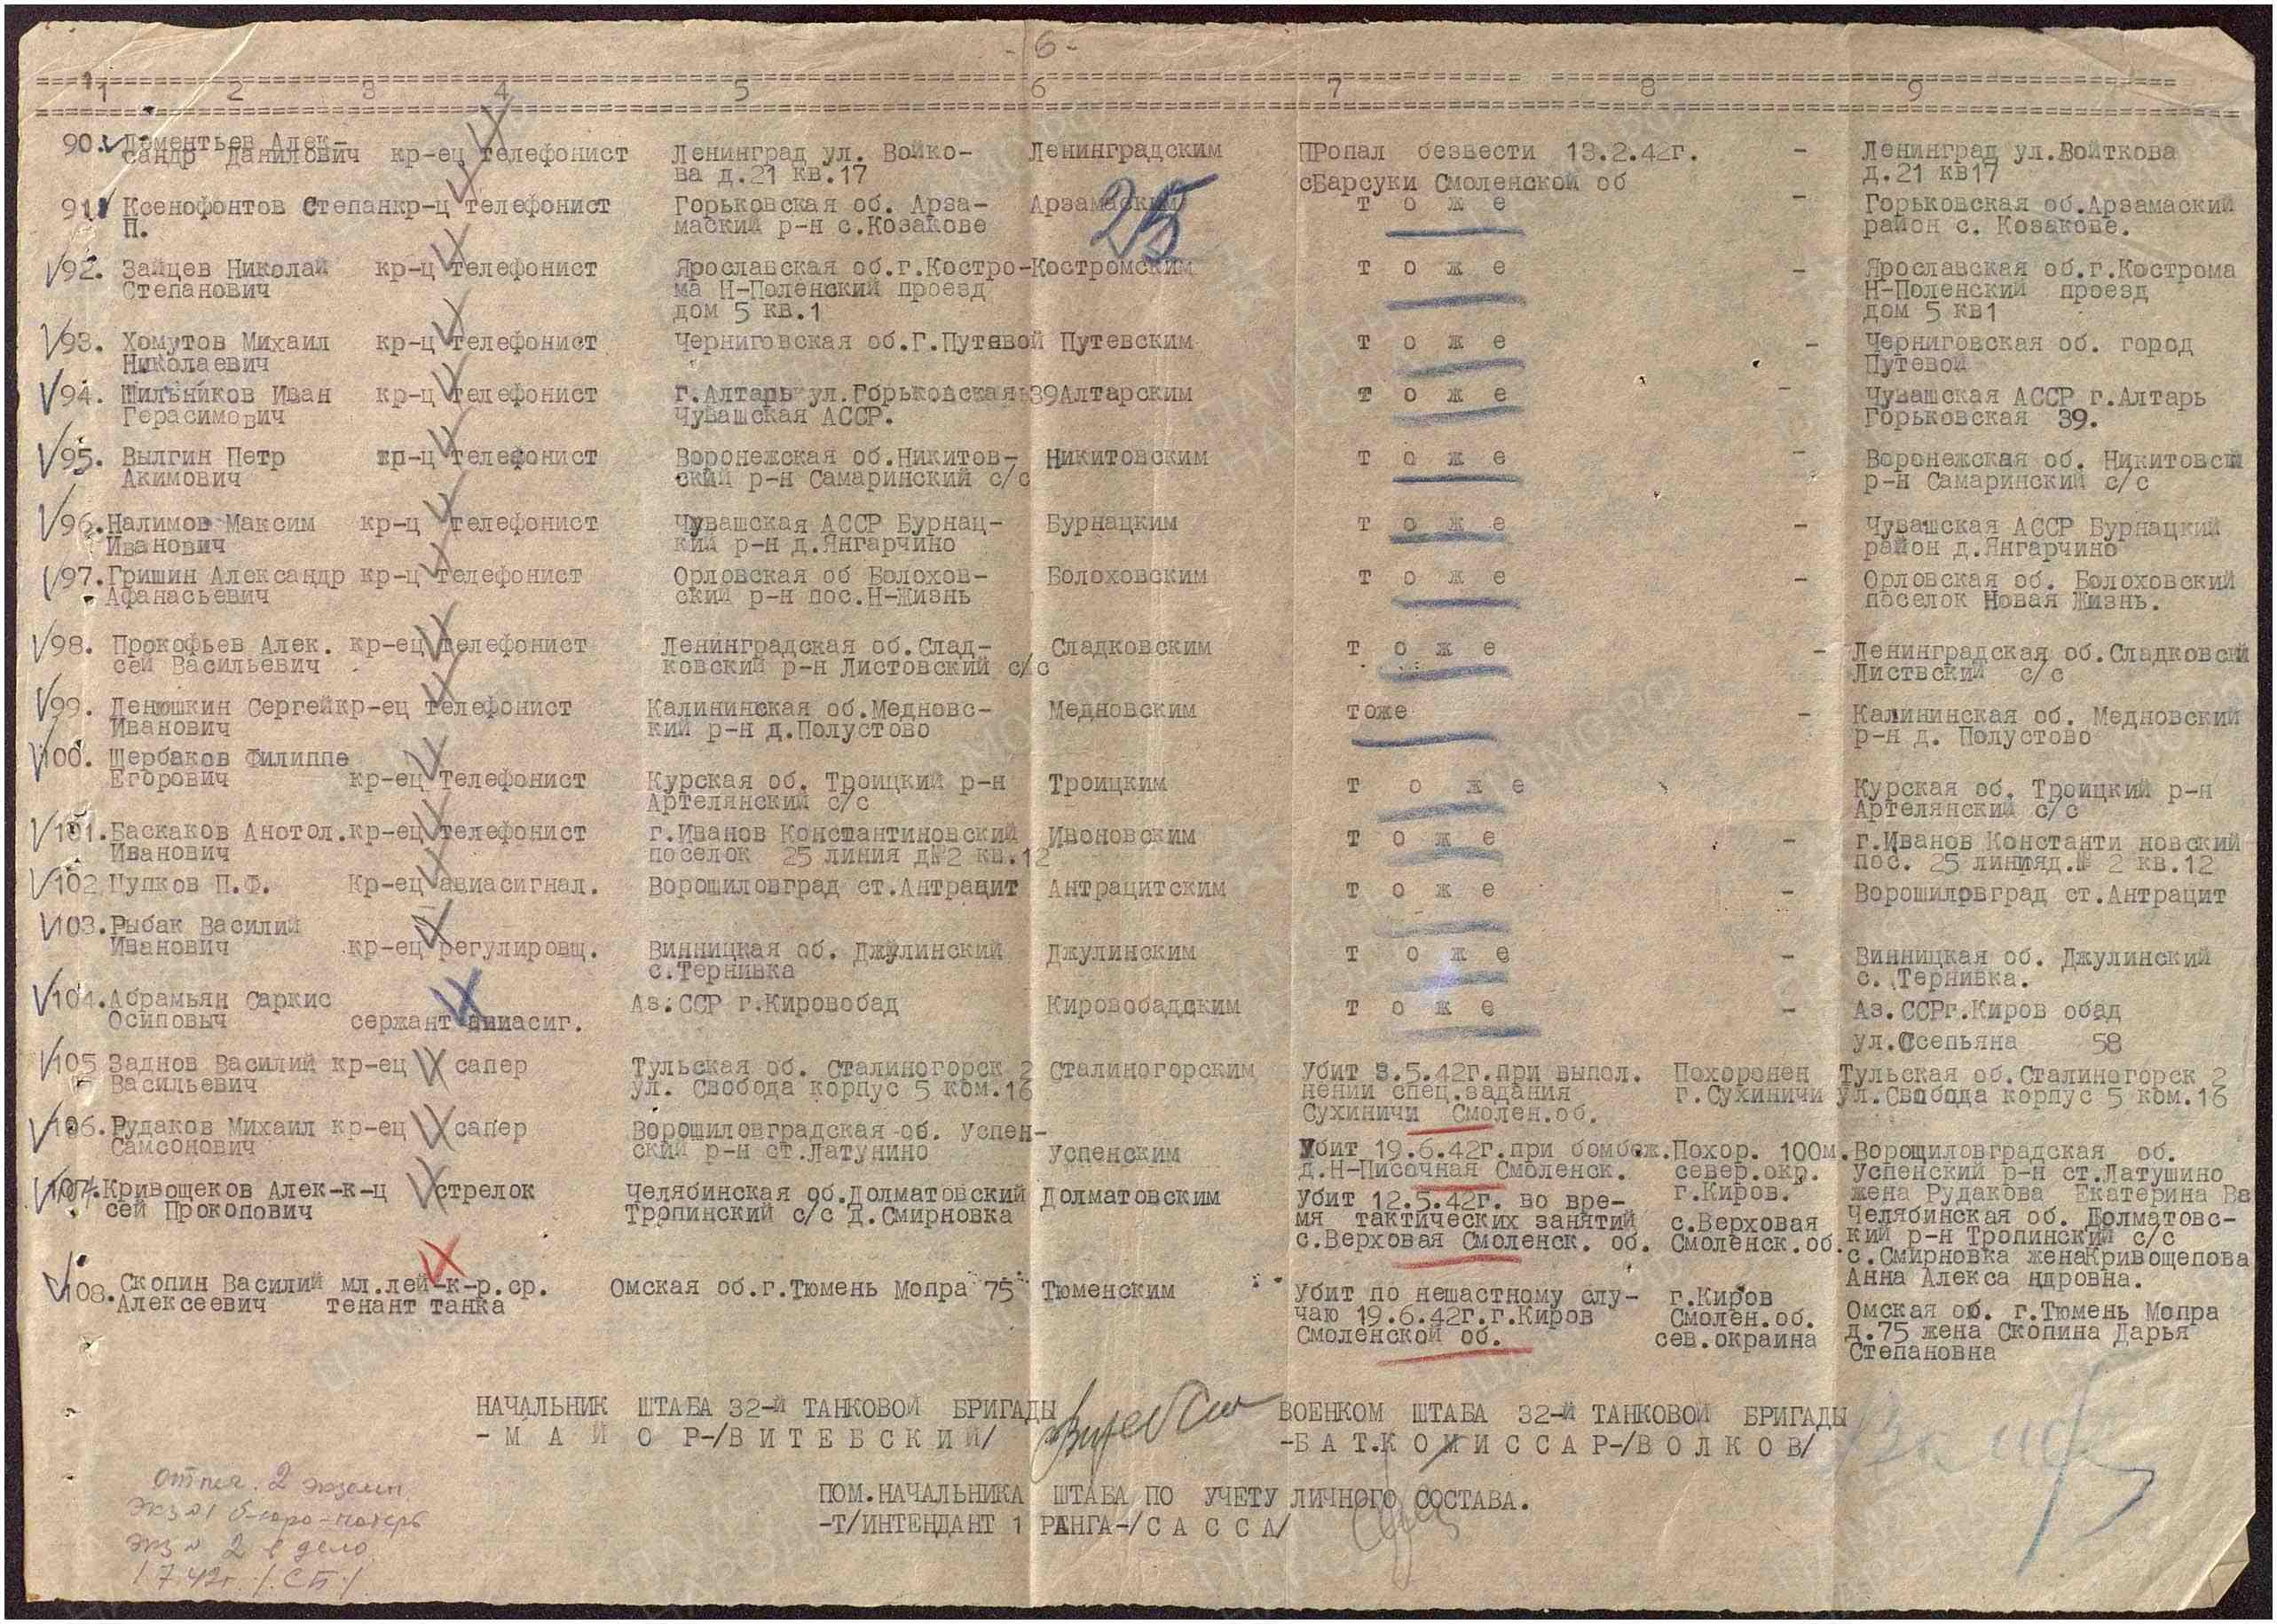 - 6 -
1 2 3 4 5 6 7 8 9
90. Дементьев Алек-
сандр Данилович кр-ец телефонист Ленинград ул. Войко- Ленинградским ПРопал безвести 13.2.42г. - Ленинград ул.Войткова
ва д.21 кв.17 сБарсуки Смоленской об д.21 кв17
91. Ксенофонтов Степанкр-ц телефонист Горьковская об. Арза- Арзамаским т о ж е - Горьковская об.Арзамаский
П. маский р-н с.Козакове район с. Козакове.
25
92. Зайцев Николай кр-ц телефонист Ярославская об.г.Костро-Костромским т о ж е - Ярославская об.г.Кострома
Степанович ма Н-Поленский проезд Н-Поленский проезд
дом 5 кв.1 дом 5 кв1
93. Хомутов Михаил кр-ц телефонист Черниговская об.Г.Путявой Путевским т о ж е - Черниговская об. город
Николаевич Путевой
94. Шильников Иван кр-ц телефонист г.Алтарь ул.Горьковская 39Алтарским т о ж е - Чувашская АССР г.Алтарь
Герасимович Чувашская АССР. Горьковская 39.
95. Вылгин Петр кр-ц телефонист Воронежская об.Никитов- Никитовским т о ж е - Воронежская об. Никитовсий
Акимович ский р-н Самаринский с/с р-н Самаринский с/с
96. Налимов Максим кр-ц телефонист Чувашская АССР Бурнац- Бурнацким т о ж е - Чувашская АССР Бурнацкий
Иванович кий р-н д.Янгарчино район д.Янгарчино
97. Гришин Александр кр-ц телефонист Орловская об Болохов- Болоховским т о ж е - Орловская об. Болоховский
Афанасьевич ский р-н пос.Н-Жизнь поселок Новая Жизнь.
98. Прокофьев Алек. кр-ец телефонист Ленинградская об.Слад- Сладковским т о ж е - Ленинградская об.Сладковсий
сей Васильевич ковский р-н Листовский с/с Листвский с/с
99. Денюшкин Сергейкр-ец телефонист Калининская об.Медновс- Медновским тоже - Калининская об. Медновский
Иванович кий р-н д.Полустово р-н д. Полустово
100. Щербаков Филиппе
Егорович кр-ец Телефонист Курская об. Троицкий р-н Троицким т о ж е Курская об. Троицкий р-н
Артелянский с/с Артелянский с/с
101. Баскаков Анотол.кр-ец телефонист г.Иванов Константиновский Ивоновским т о ж е - г.Иванов Константи новский
Иванович поселок 25 линия д№2 кв.12 пос. 25 линияд.№ 2 кв.12
102 Цупков П.Ф. Кр-ец авиасигнал. Ворошиловград ст.Антрацит Антрацитским т о ж е - Ворошиловград ст.Антрацит
103. Рыбак Василий
Иванович кр-ец регулировщ. Винницкая об. Джулинский Джулинским т о ж е - Винницкая об. Джулинский
с.Тернивка с. Тернивка.
104. Абрамьян Саркис Аз.ССР г.Кировобад Кировобадским т о ж е - Аз.ССРг.Киров обад
Осиповыч сержант авиасиг. ул.Осепьяна 58
105 Заднов Василий кр-ец сапер Тульская об. Сталиногорск 2 Сталиногорским Убит 3.5.42г.при выпол. Похоронен Тульская об.Сталиногорск 2
Васильевич ул. Свобода корпус 5 ком.16 нении спец.задания г.Сухиничи ул.Свобода корпус 5 ком.16
Сухиничи Смолен.об.
106. Рудаков Михаил кр-ец сапер Ворошиловградская об. Успен- Успенским Убит 19.6.42г.при бомбеж. Похор. 100м. Ворощиловградская об.
Самсонович ский р-н ст.Латунино д.Н-Писочная Смоленск. север.окр. Успенский р-н ст.Латушино
г.Киров. жена Рудакова Екатерина Ва
107. Кривощеков Алек-к-ц стрелок Челябинская об.Долматовский Долматовским Убит 12.5.42г. во вре- Челябинская об. Долматовс-
сей Прокопович Тропинский с/с д.Смирновка мя тактических занятий с.Верховая кий р-н Тропинский с/с
с.Верховая Смоленск. об. Смоленск.об. с.Смирновка женаКривощепова
Анна Алекса ндровна.
108. Скопин Василий мл.лей-к-р.ср. Омская об.г.Тюмень Мопра 75 Тюменским Убит по нешастному слу- г.Киров Омская об. г.Тюмень Мопра
Алексеевич тенант танка чаю 19.6.42г.г.Киров Смолен.об. д.75 жена Скопина Дарья
Смоленской об. сев.окраина Степановна
НАЧАЛЬНИК ШТАБА 32-й ТАНКОВОЙ БРИГАДЫ ВОЕНКОМ ШТАБА 32-Й ТАНКОВОЙ БРИГАДЫ
- М А Й О Р-/В И Т Е Б С К И Й/ -Б А Т.К О М И С С А Р-/В О Л К О В/
ПОМ.НАЧАЛЬНИКА ШТАБА ПО УЧЕТУ ЛИЧНОГО СОСТАВА.
-Т/ИНТЕНДАНТ 1 РАНГА-/С А С С А/
отпеч. 2 экземп.
Экз №1 б-юро-потерь
Экз № 2 в дело
1.7.42г. /СБ/